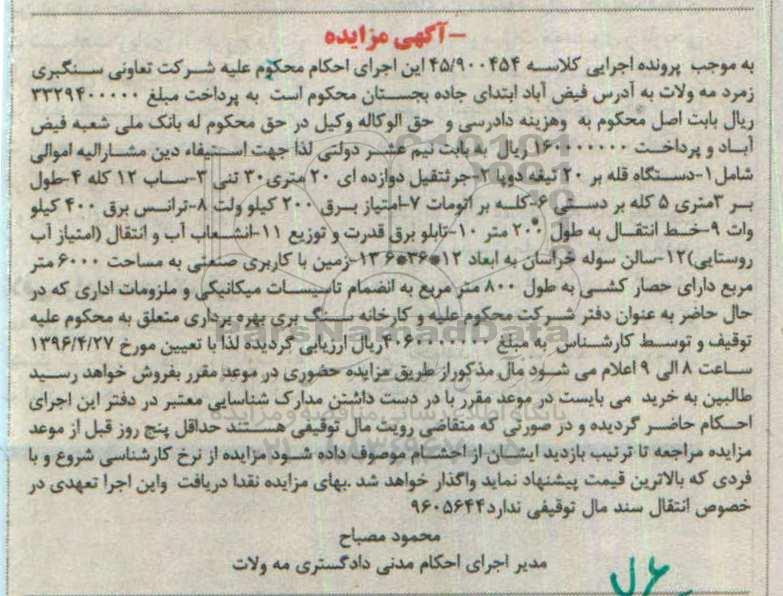 -آگهی مزایده
به موجب پرونده اجرایی کلاسه ۴۵/۹۰۰۴۵۴ این اجرای احکام محکوم علیه شرکت تعاونی سنگبری
زمرد مه ولات به آدرس فیض آباد ابتدای جاده بجستان محکوم است به پرداخت مبلغ ۳۳۲۹۴۰۰۰۰۰
ریال بابت اصل محکوم به وهزینه دادرسی و حق الوکاله وکیل در حق محکوم له بانک ملی شعبه فیض
آباد و پرداخت ۱۶۰۰۰۰۰۰۰ ریال به بابت نیم عشر دولتی لذا جهت استیفاء دین مشارالیه اموالی
شامل۱-دستگاه قله بر ۲۰ تیغه دوپا ۲-جرثقیل دوازده ای ۲۰ متری۳۰ تنی ۳-ساب ۱۲ کله ۴-طول
بر ۳متری ۵ کله بر دستی ۶-کلـه بر اتومات ۷-امتیاز بـرق ۲۰۰ کیلو ولت ۸-ترانس برق ۴۰۰ کیلو
وات ۹-خط انتقال به طول ۲۰۰ متر ۱۰-تابلو برق قدرت و توزیع ۱۱-انشعاب آب و انتقال (امتیاز آب
روستایی)۱۲-سالن سوله خراسان به ابعاد ۱۲*۳۶*۶ ۱۳-زمین با کاربری صنعتی به مساحت ۶۰۰۰ متر
مربع دارای حصار کشی به طول ۸۰۰ متر مربع به انضمام تاسیسات میکانیکی و ملزومات اداری که در
حال حاضر به عنوان دفتر شرکت محکوم علیه و کارخانه سنگ بری بهره برداری متعلق به محکوم علیه
توقیف و توسط کارشناس به مبلغ ۴۰۶۰۰۰۰۰۰۰ریال ارزیابی گردیده لذا با تعیین مورخ ۱۳۹۶/۴/۲۷
ساعت ۸ الی ۹ اعلام می شود مال مذکوراز طریق مزایده حضوری در موعد مقرر بفروش خواهد رسید
طالبین به خرید می بایست در موعد مقرر با در دست داشتن مدارک شناسایی معتبر در دفتر این اجرای
احکام حاضر گردیده و در صورتی که متقاضی رویت مال توقیفی هستند حداقل پنج روز قبل از موعد
مزایده مراجعه تا ترتیب بازدید ایشان از احشام موصوف داده شود مزایده از نرخ کارشناسی شروع و با
فردی که بالاترین قیمت پیشنهاد نماید واگذار خواهد شد .بهای مزایده نقدا دریافت واین اجرا تعهدی در
خصوص انتقال سند مال توقیفی ندارد۹۶۰۵۶۴۴
محمود مصباح
مدیر اجرای احکام مدنی دادگستری مه ولات
ParsNamadData